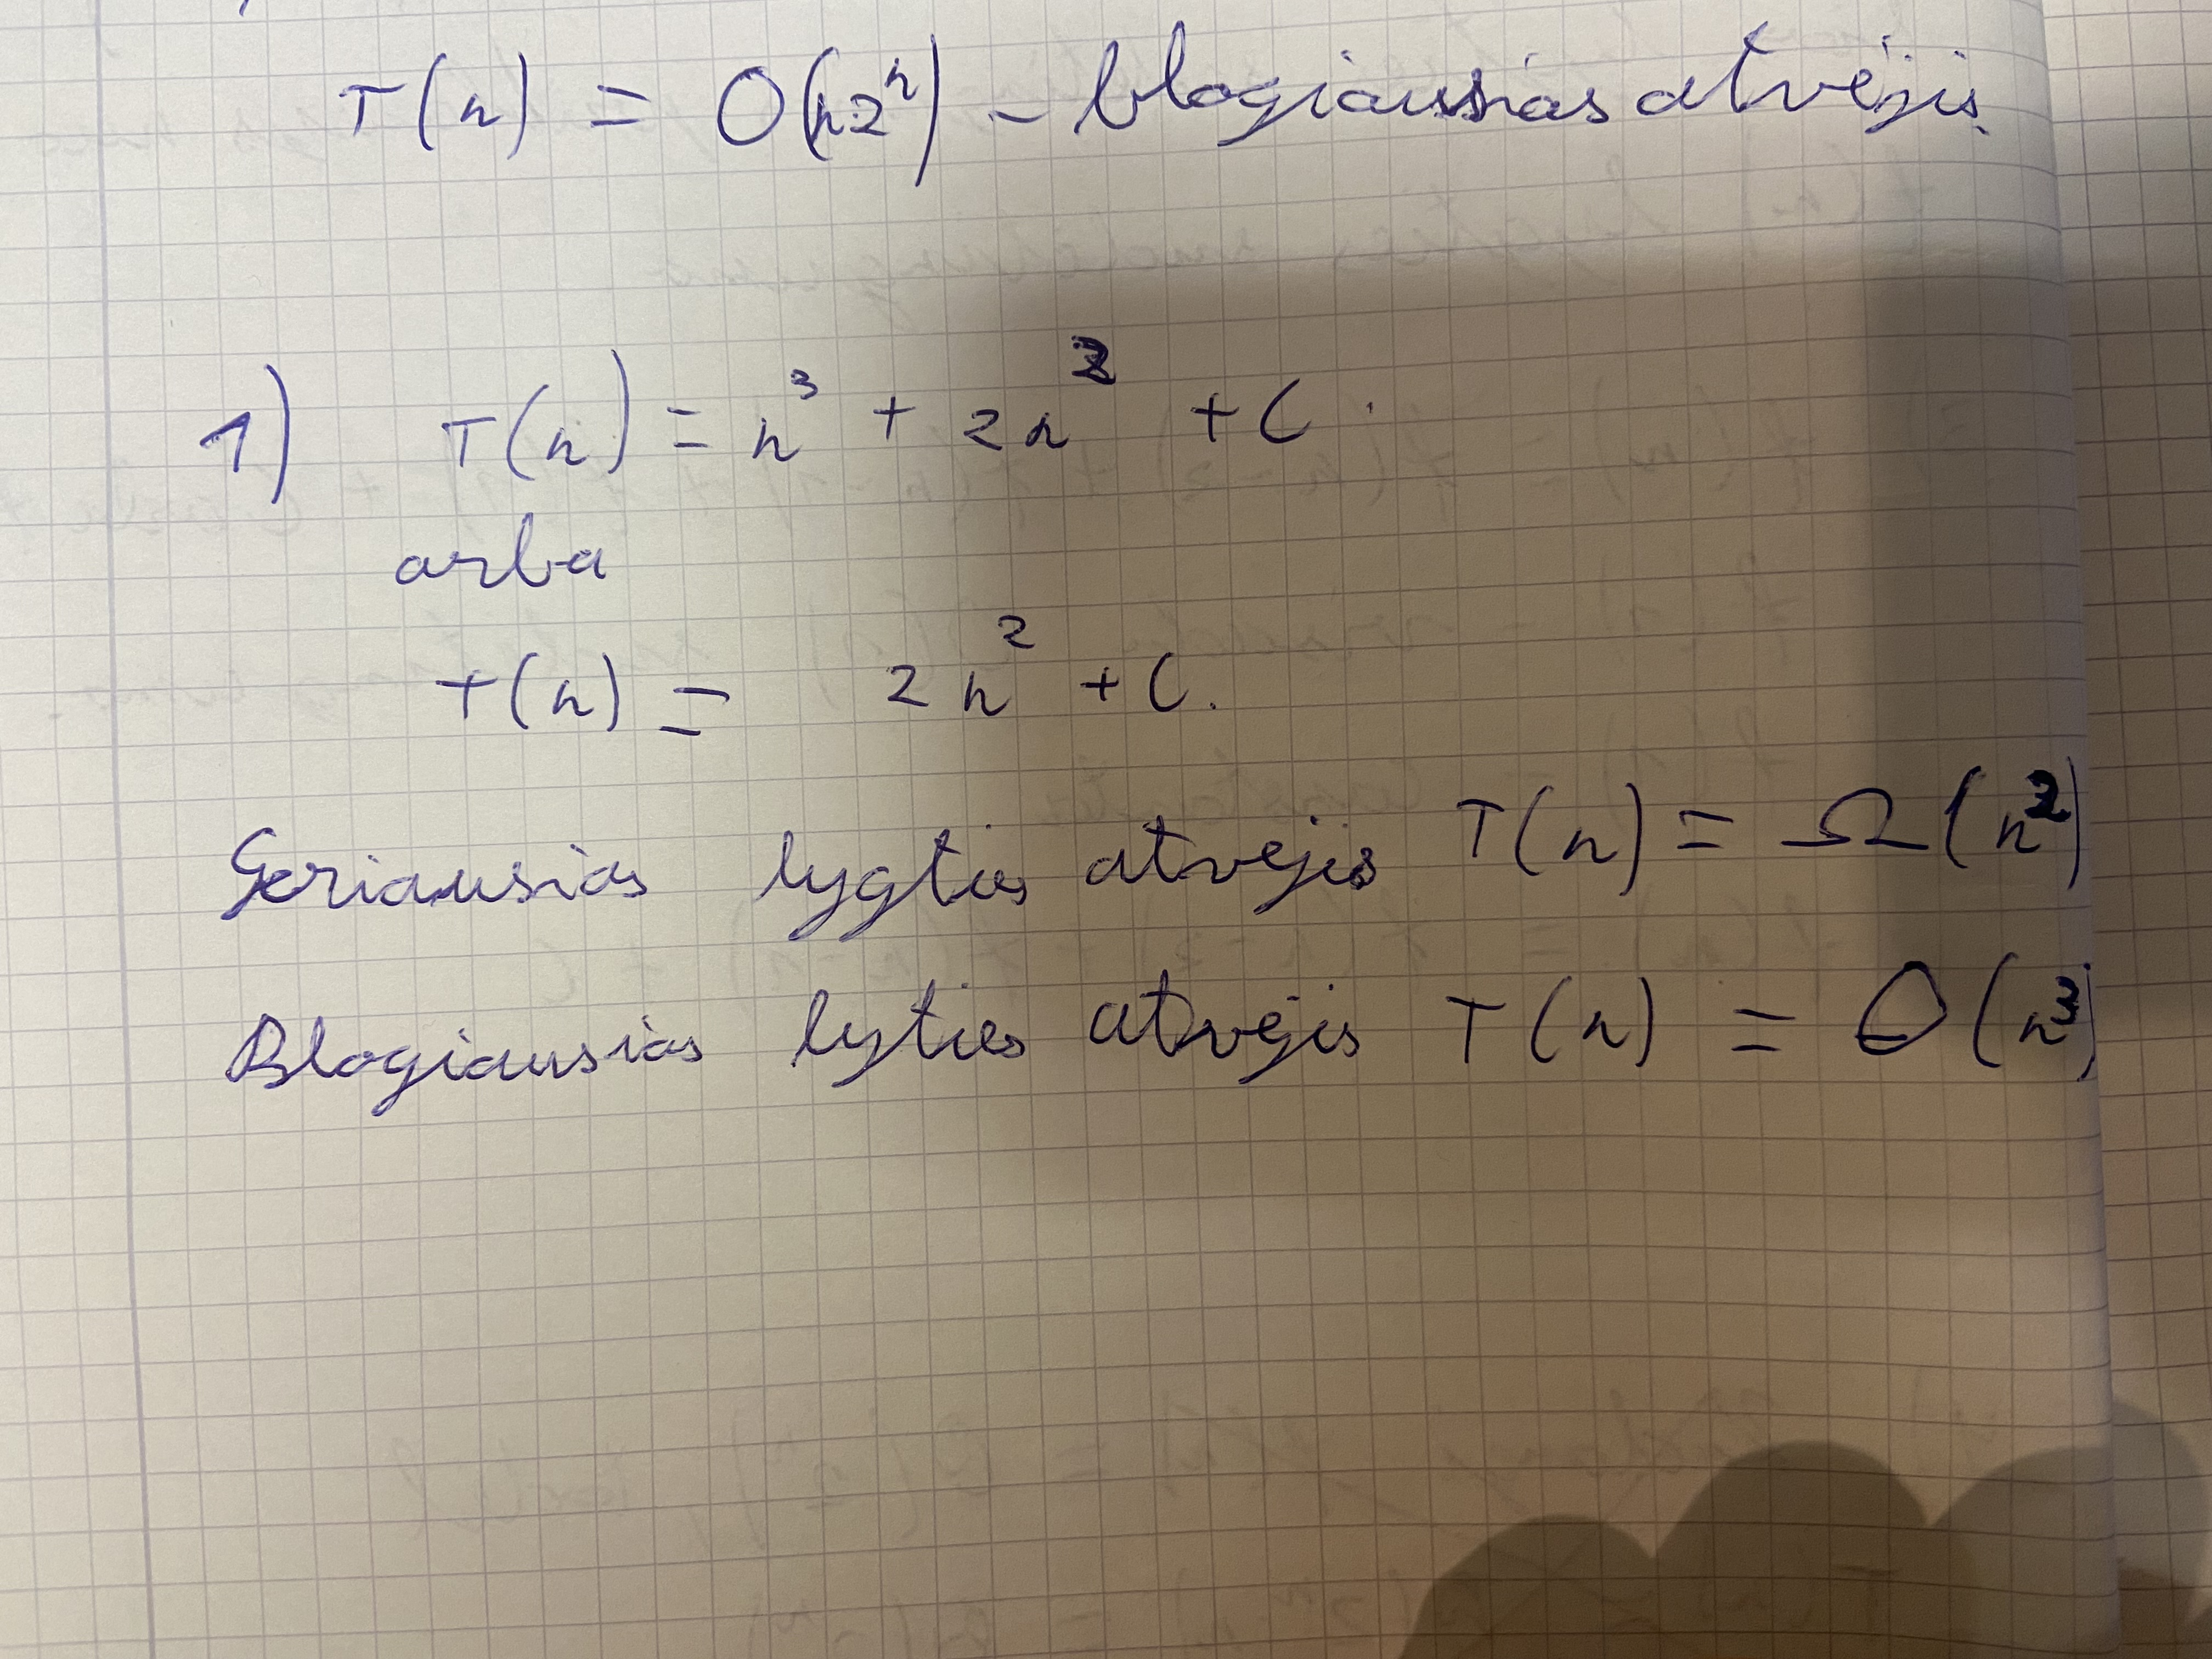 T(n) = O(n2ⁿ) - blogiausias atvėjis.
1) T(n) = n³ + 2n² + C.
arba
T(n) = 2n² + C.
Geriausias lygties atvėjis T(n) = Ω(n²)
Blogiausias lyties atvėjis T(n) = O(n³)